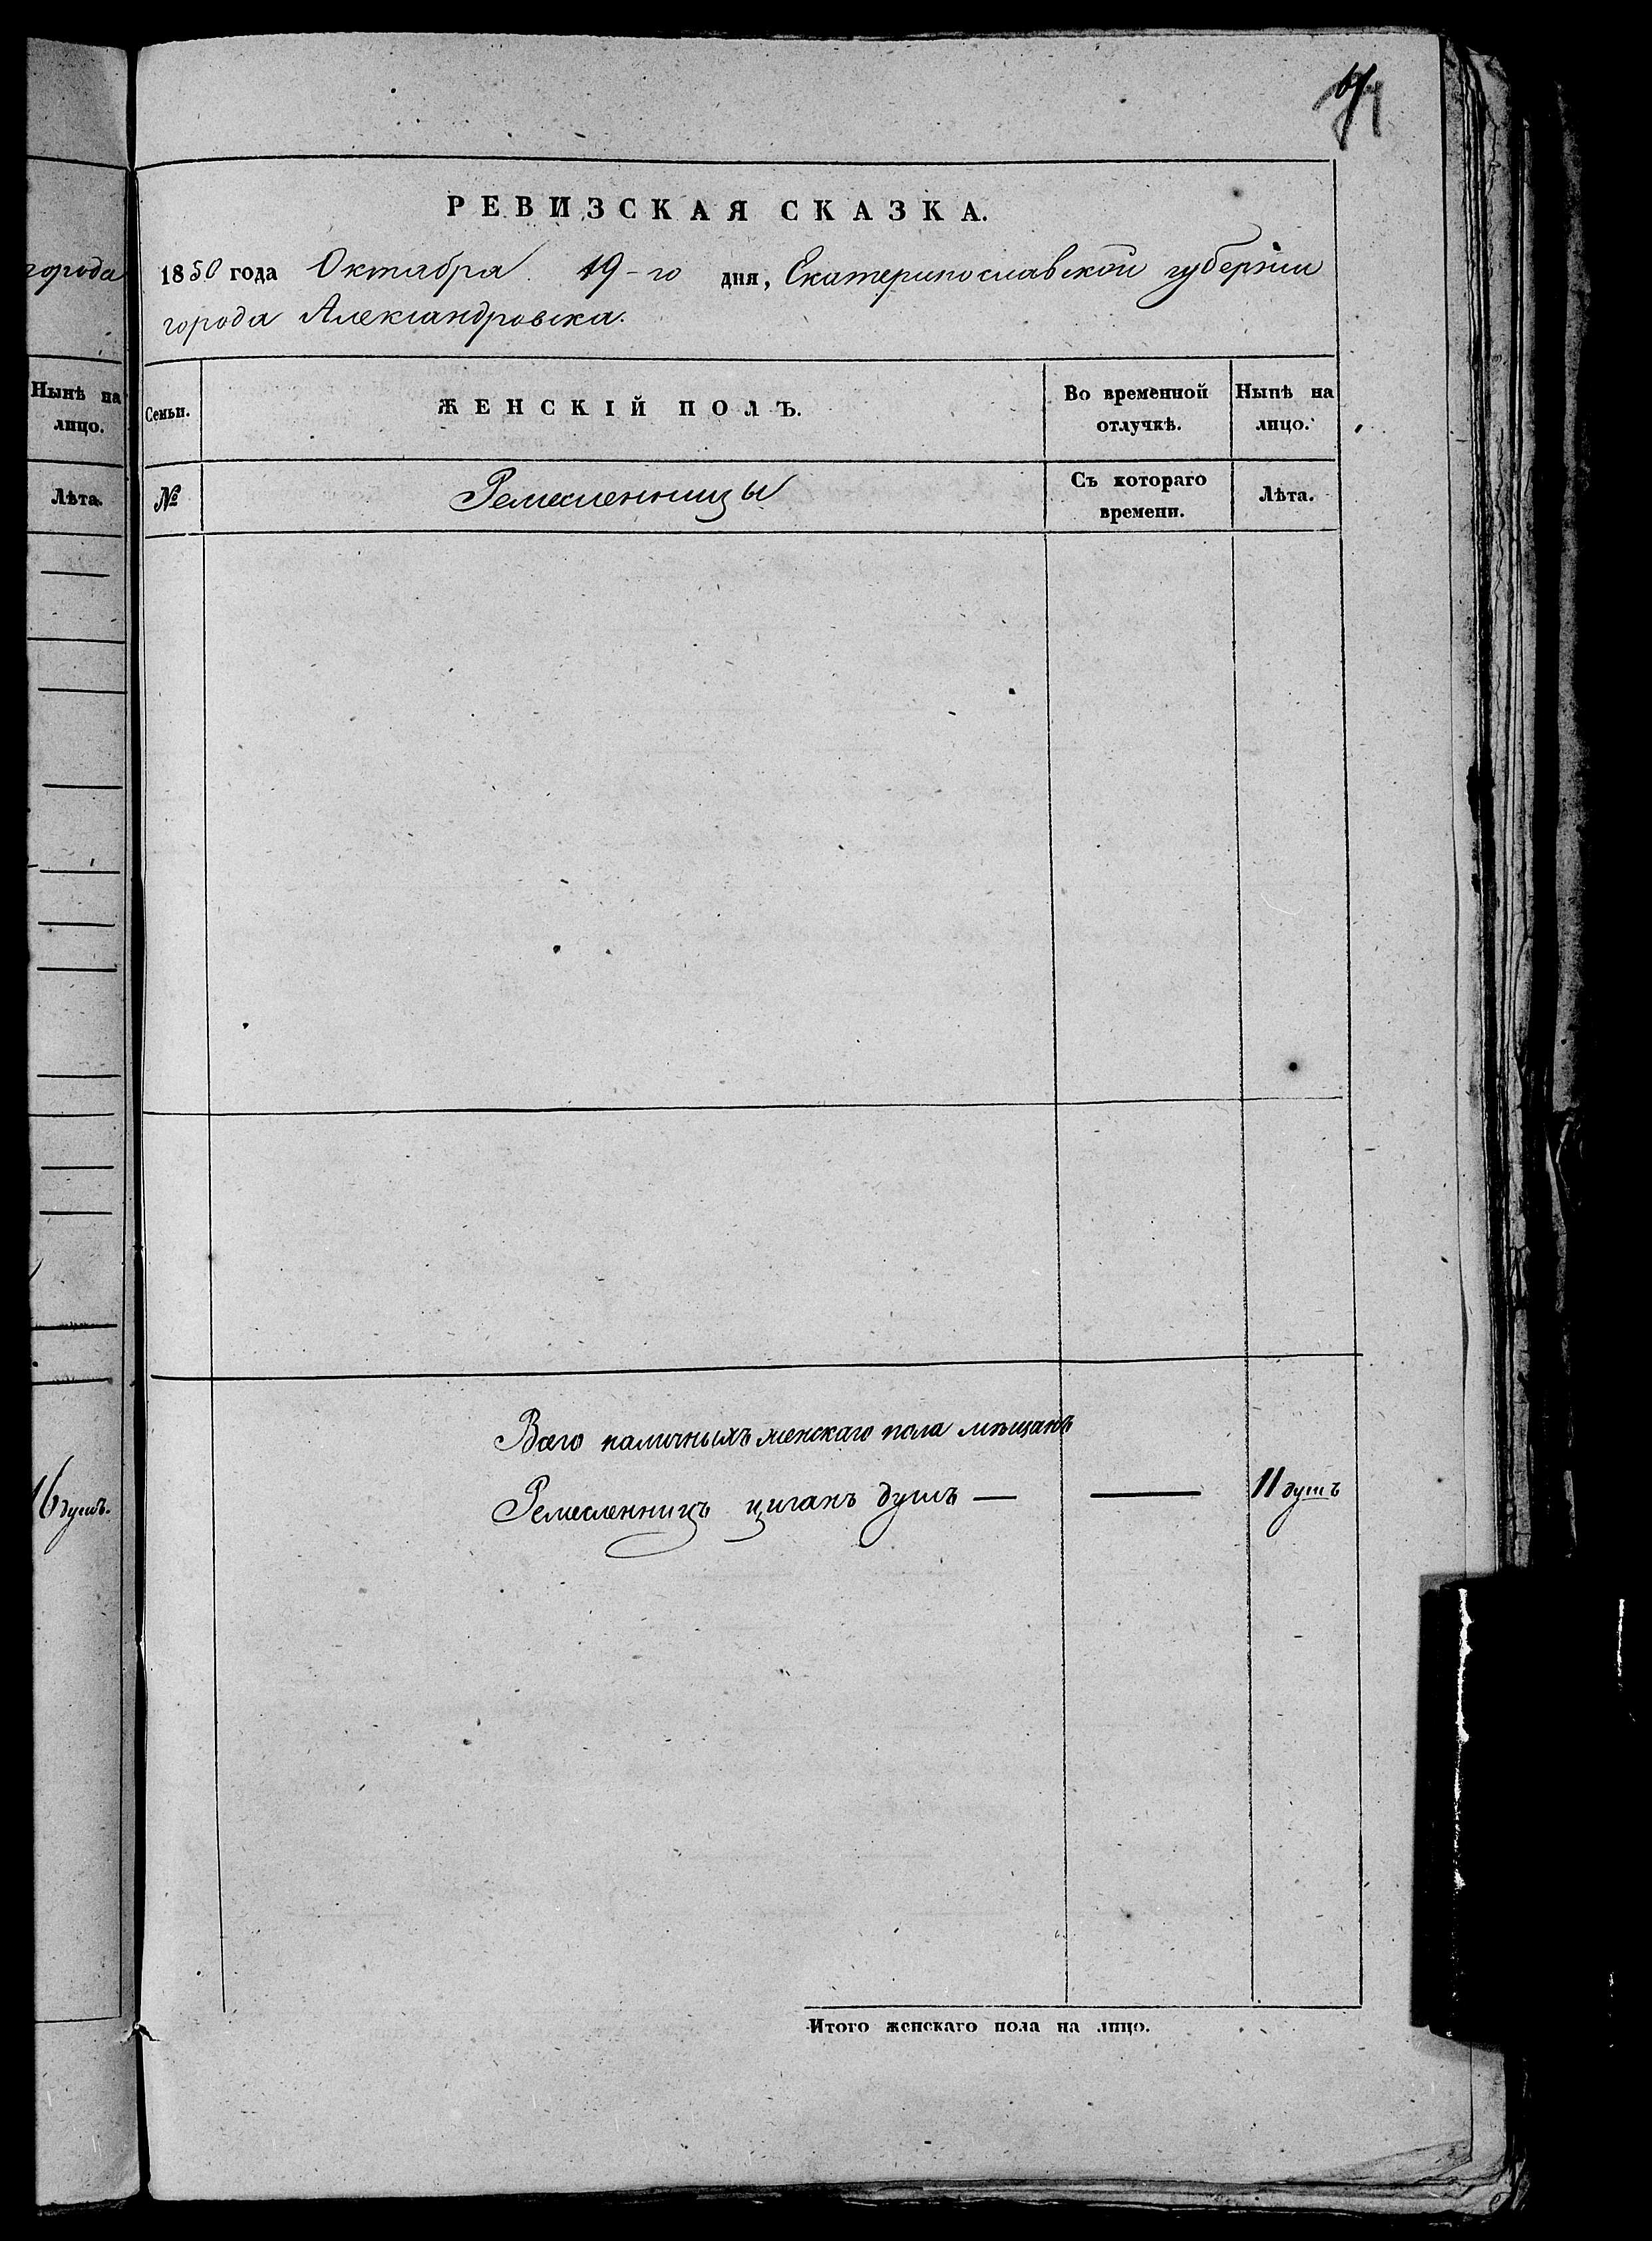 города
Нынѣ на
лицо.
Лѣта.
16 душъ.
РЕВИЗСКАЯ СКАЗКА.
1850 года Октября 19-го дня, Екатеринославской губернии
города Александровска.
Семьи.
ЖЕНСКІЙ ПОЛЪ.
Во временной
отлучкѣ.
Нынѣ на
лицо.
№
Ремесленницы
Съ котораго
времени.
Лѣта.
Всего наличныхъ женскаго пола мѣщанъ
Ремесленницъ циганъ душъ — — 11 душъ
Итого женскаго пола на лицо.